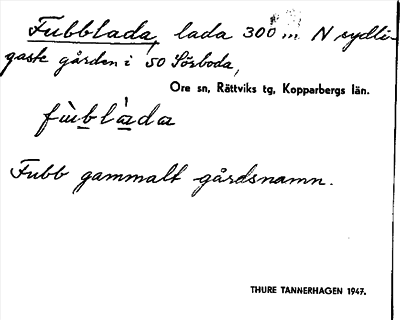 Fubblada, lada 300 m N sydli-
gaste gården i SO Sörboda,
Ore sn, Rättviks tg, Kopparbergs län.
fùblàda
Fubb gammalt gårdsnamn.
THURE TANNERHAGEN 1947.